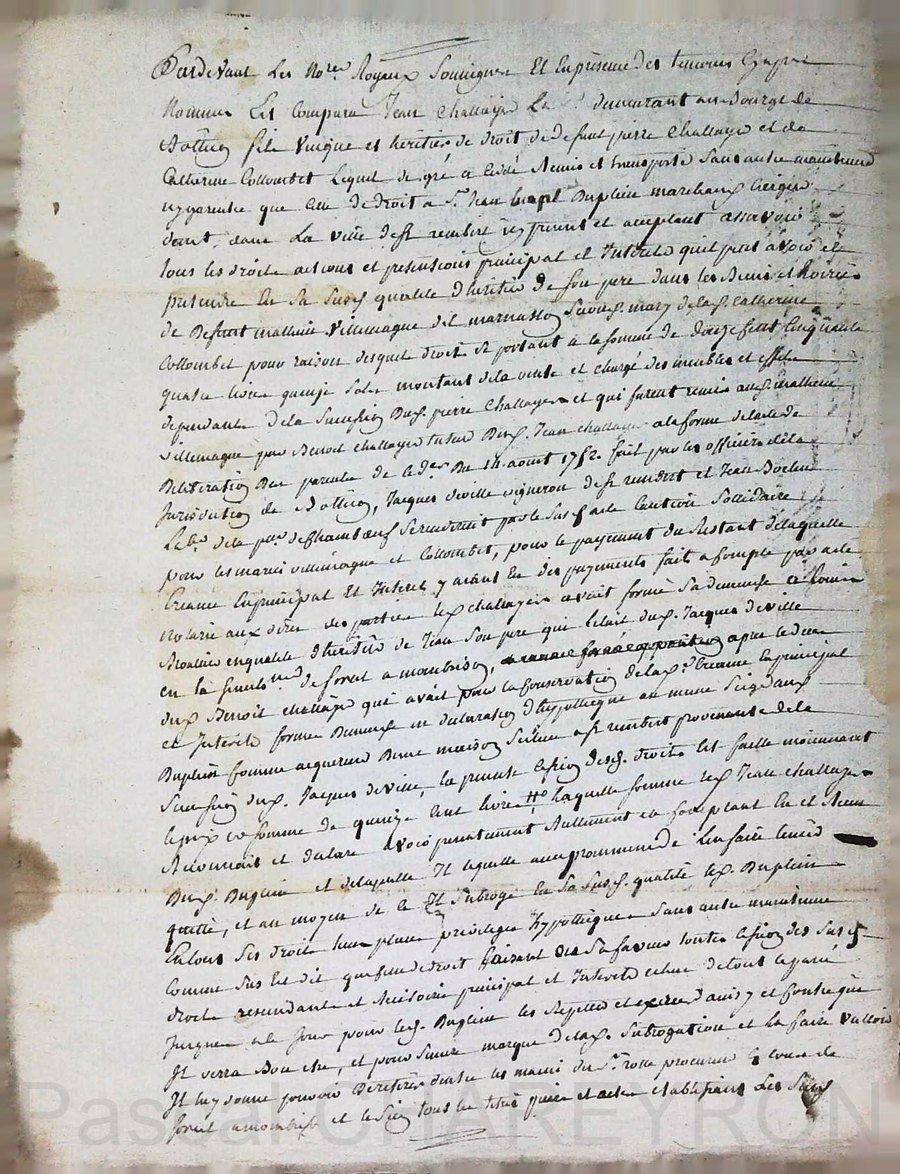 Pardevant Les No.res Royaux Soussignes Et En presence des temoins Cyapres
Nommes Est Comparu Jean Challaye demeurant au Bourg de
Bothéon fils Unique et heritier de droit de defunt pierre Challayer et de
Catherine Collombet Lequel de gré a Cedé Remis et transporté Sans autre maintenue
ny garentie que Celle de droit a S.r Jean Duplein marchand
dans La ville de S.t rembert icy present et acceptant assavoir
tous les droits actions et pretensions principal et Interets quil peut avoir et
pretendre En Sa Susd. qualité dheritier de Son pere dans les Biens et hoirie
de Deffunt mathieu Villemagne dit marnasson Second mary de lad. Catherine
Collombet pour raison desquels droits Se portant a la somme de douze Cent Cinquante
quatre livres quinze Sols montant de la vente et charge des meubles et effets
dependants de la Succession Dud. pierre Challayer et qui furent remis aud. mathieu
Villemagne par Benoit Challayer tuteur Dud. Jean Challaye a la forme de lacte de
Deliberation Des parents de ced.er Du 14 aout 1752. fait par les officiers de la
Jurisdiction de Bothéon, Jacques deville vigneron de S.t rembert et Jean
de la p.sse de Chambœuf Serendirent par le Susd. acte Caution Sollidaire
pour les mariés villemagne et Collombet, pour le payement du Restant de laquelle
Creance En principal Et Interets y ayant Eu des payements faits a Compte par acte
Notarié aux dires des parties led. Challayer avait formé Sa demande a
en quallité dheritier de Jean Son pere qui letait dud. Jacques deville
en la de forest a montbrison, apres le deces
dud. Benoit Challaye qui avait pour la Conservation de lad. Creance En principal
et Interets formé Demande en declaration dhypotheque au meme Siege aud.
Duplein Comme acquereur Dune maison Scituée a S.t rembert provenante de la
Succession dud. Jacques deville, la presente Cession desd. droits Est faitte moiennant
le prix et somme de quinze Cent livres laquelle somme led. Jean Challayer
Reconnait et declare avoir presentement Reellement et Comptant Eu et Recue
Dud. Duplein et de laquelle Il le quitte avec promesse de Len faire tenir
quitte, et au moyen de ce Il Subroge En Sa Susd. qualité led. Duplein
En tous Ses droits lieu place privileges hypotheques Sans autre maintenue
Comme Sus Est dit que Celle de droit faisant En Sa faveur toutte Cession des Susd.
droits rescindants et Rescisoires principal et Interets echus de tout le passé
Jusques a Ce Jour pour led. Duplein les Repetter et exercer ainsy et Contre qui
Il verra Bon etre, et pour Seure marque de lad. Subrogation et la faire valloir
Il luy donne pouvoir De retirer dentre les mains du S.r rolle procureur En cour de
forest a montbrison et le Sien tous les titres pieces et actes etablissant Les Susd.
Pascal CHAREYRON